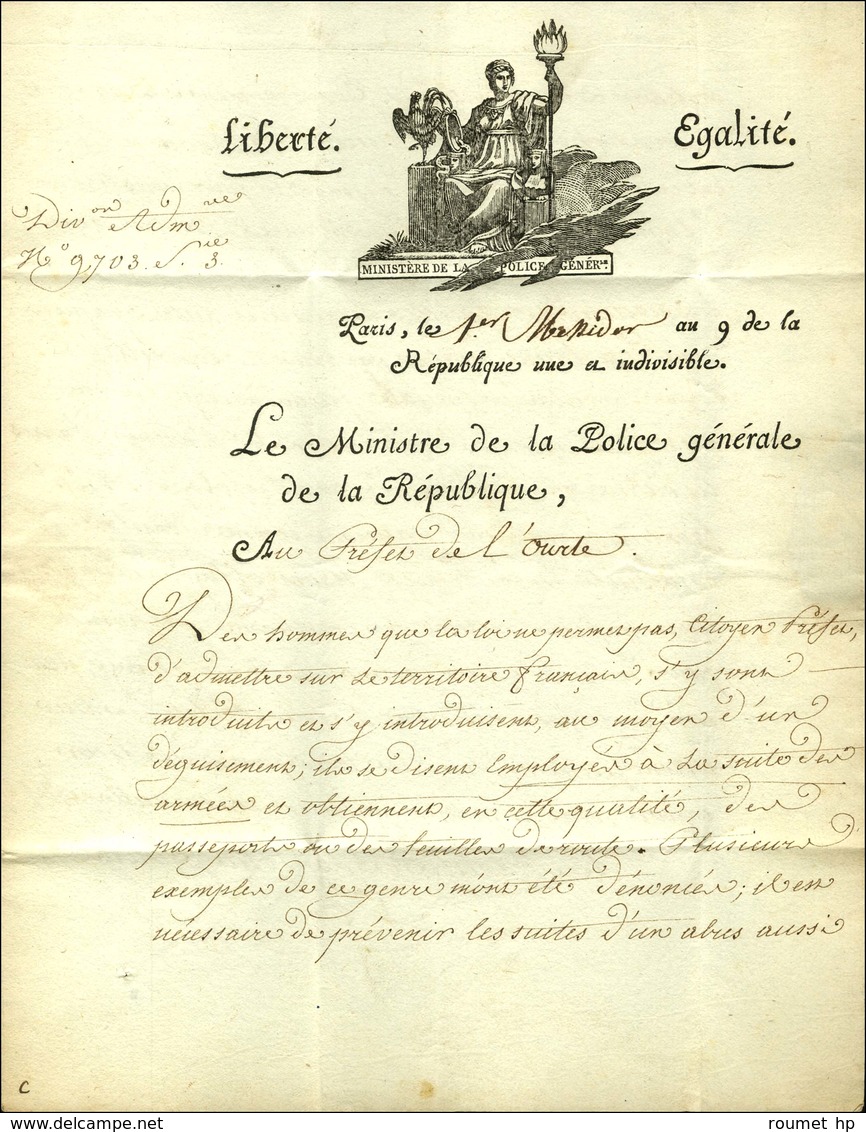 Liberté. Egalité.
Div.on Adm.ve
N.o 9,703. S.ie 3.
MINISTÈRE DE LA POLICE GÉNÉR.LE
Paris, le 1.er Messidor an 9 de la
République une et indivisible.
Le Ministre de la Police générale
de la République,
Au Préfet de l'Ourte.
Des hommes que la loi ne permet pas, Citoyen Préfet,
d'admettre sur le territoire français, s'y sont
introduits et s'y introduisent, au moyen d'un
déguisement; ils se disent Employés à la suite des
armées et obtiennent, en cette qualité, des
passeports ou des feuilles de route. Plusieurs
exemples de ce genre m'ont été dénoncés; il est
nécessaire de prévenir les suites d'un abus aussi
C
roumet hp